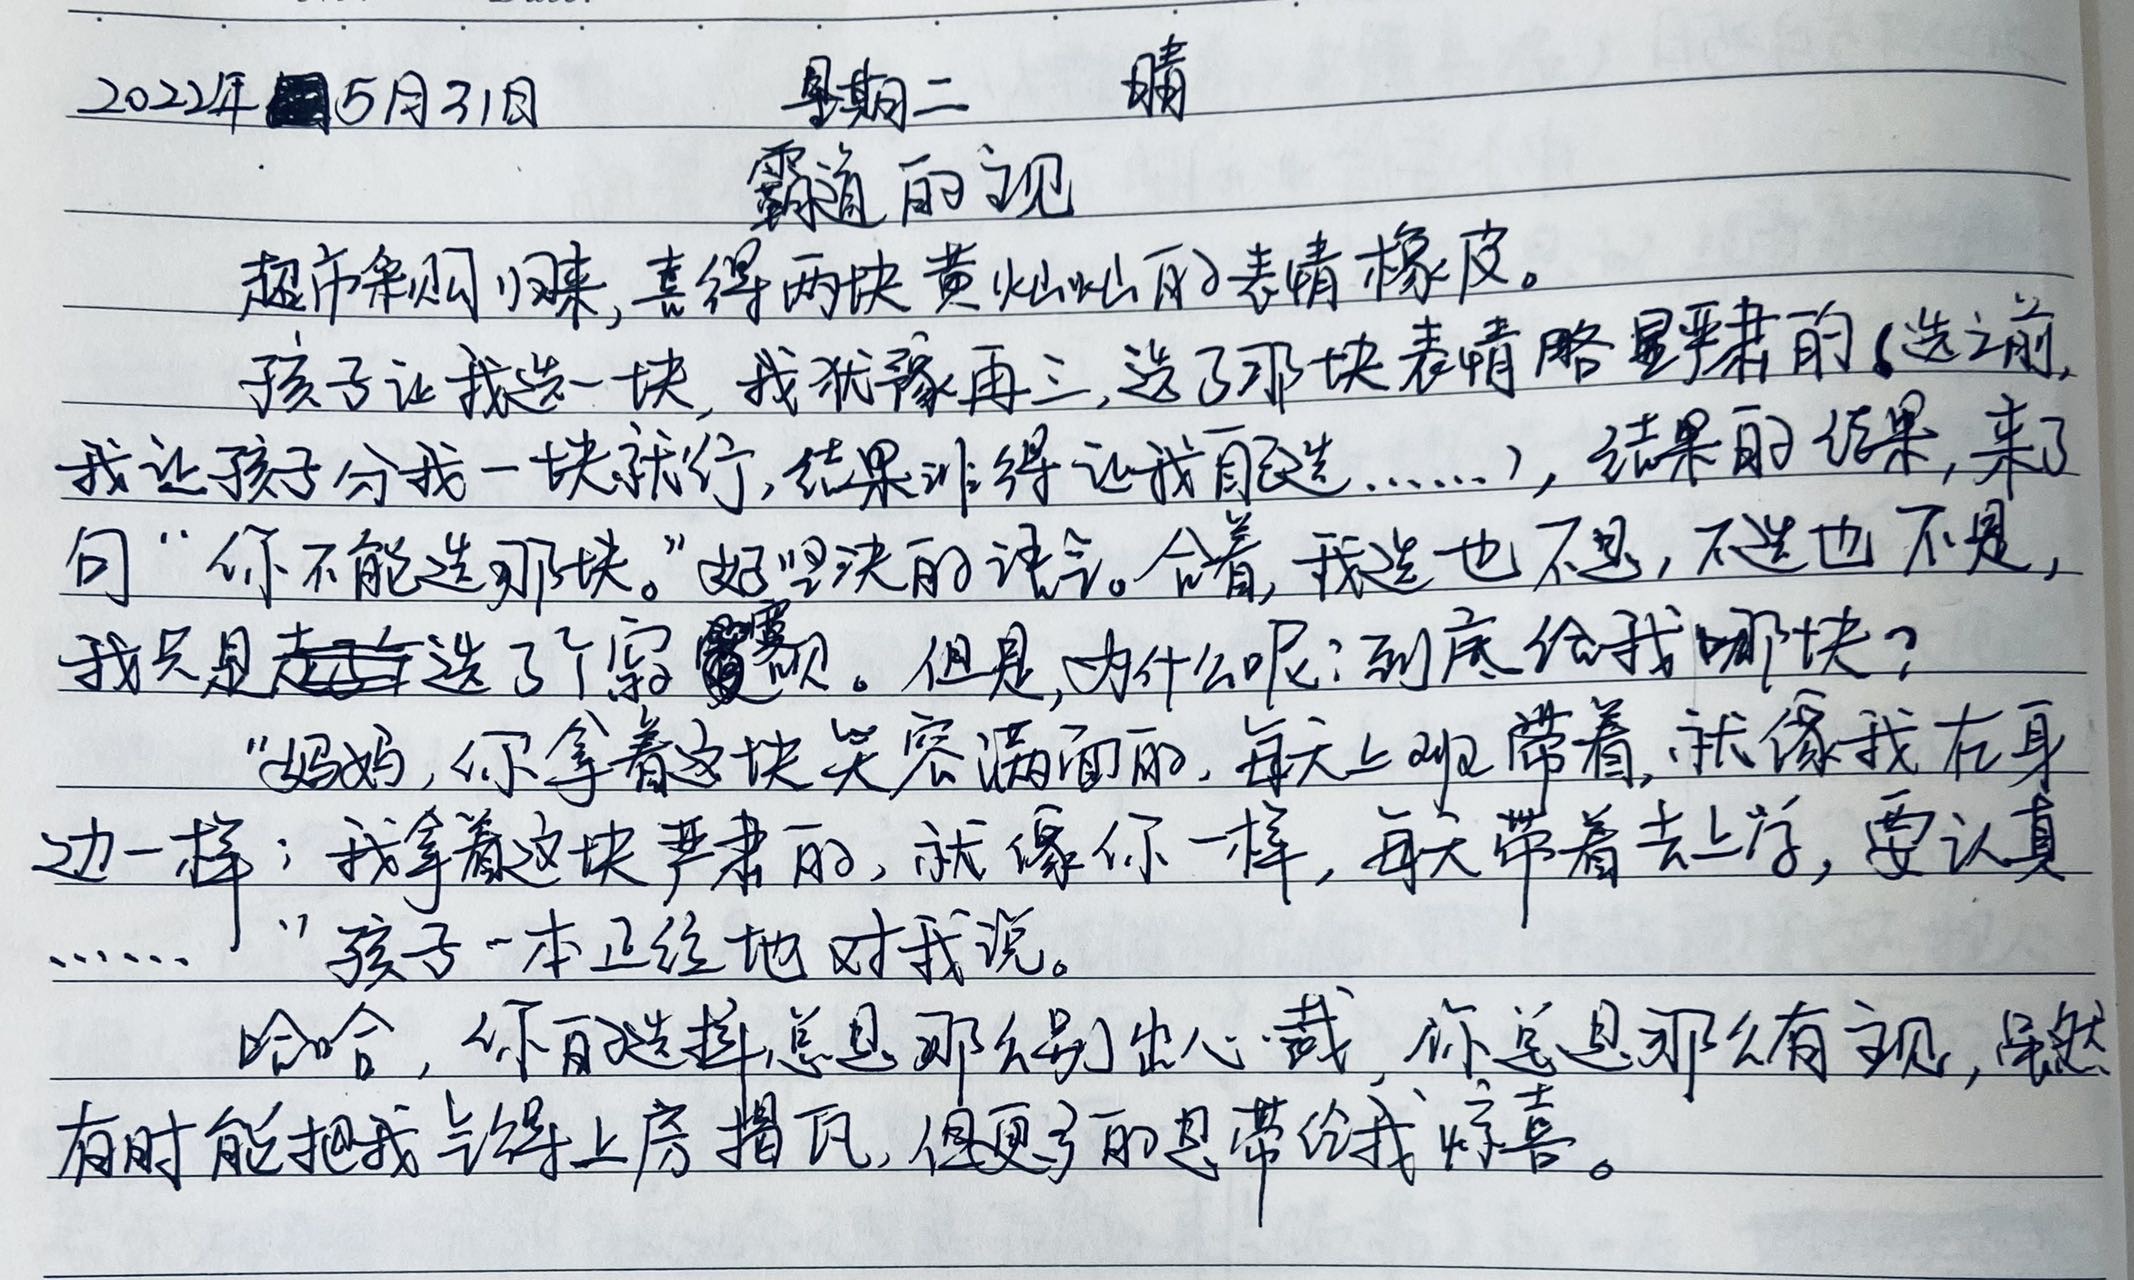 2022年5月31日 星期二 晴
霸道的主见
超市采购归来,喜得两块黄灿灿的表情橡皮。
孩子让我选一块,我犹豫再三,选了那块表情略显严肃的(选之前,
我让孩子分我一块就行,结果非得让我自己选……),结果的结果,来了
句“你不能选那块。”好坚决的语气。合着,我选也不是,不选也不是,
我只是选了个寂寞呗。但是,为什么呢?到底给我哪块?
“妈妈,你拿着这块笑容满面的,每天上班带着,就像我在身
边一样;我拿着这块严肃的,就像你一样,每天带着去上学,要认真
……”孩子一本正经地对我说。
哈哈,你的选择总是那么别出心裁,你总是那么有主见,虽然
有时能把我气得上房揭瓦,但更多的是带给我惊喜。